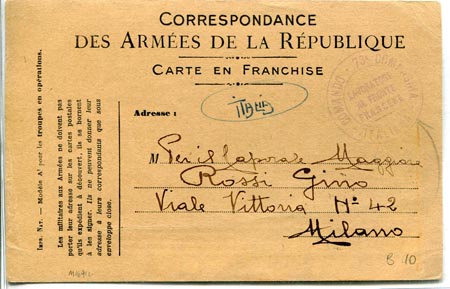 CORRESPONDANCE
DES ARMÉES DE LA RÉPUBLIQUE
CARTE EN FRANCHISE
Adresse :
ITALIA
M Per il Caporale Maggiore
Rossi Gino
Viale Vittoria N° 42
Milano
B 10
IMP. NAT. — Modèle A¹ pour les troupes en opérations.
Les militaires aux Armées ne doivent pas
porter leur adresse sur les cartes postales
qu'ils expédient à découvert, ils se bornent
à les signer. Ils ne peuvent donner leur
adresse à leurs correspondants que sous
enveloppe close.